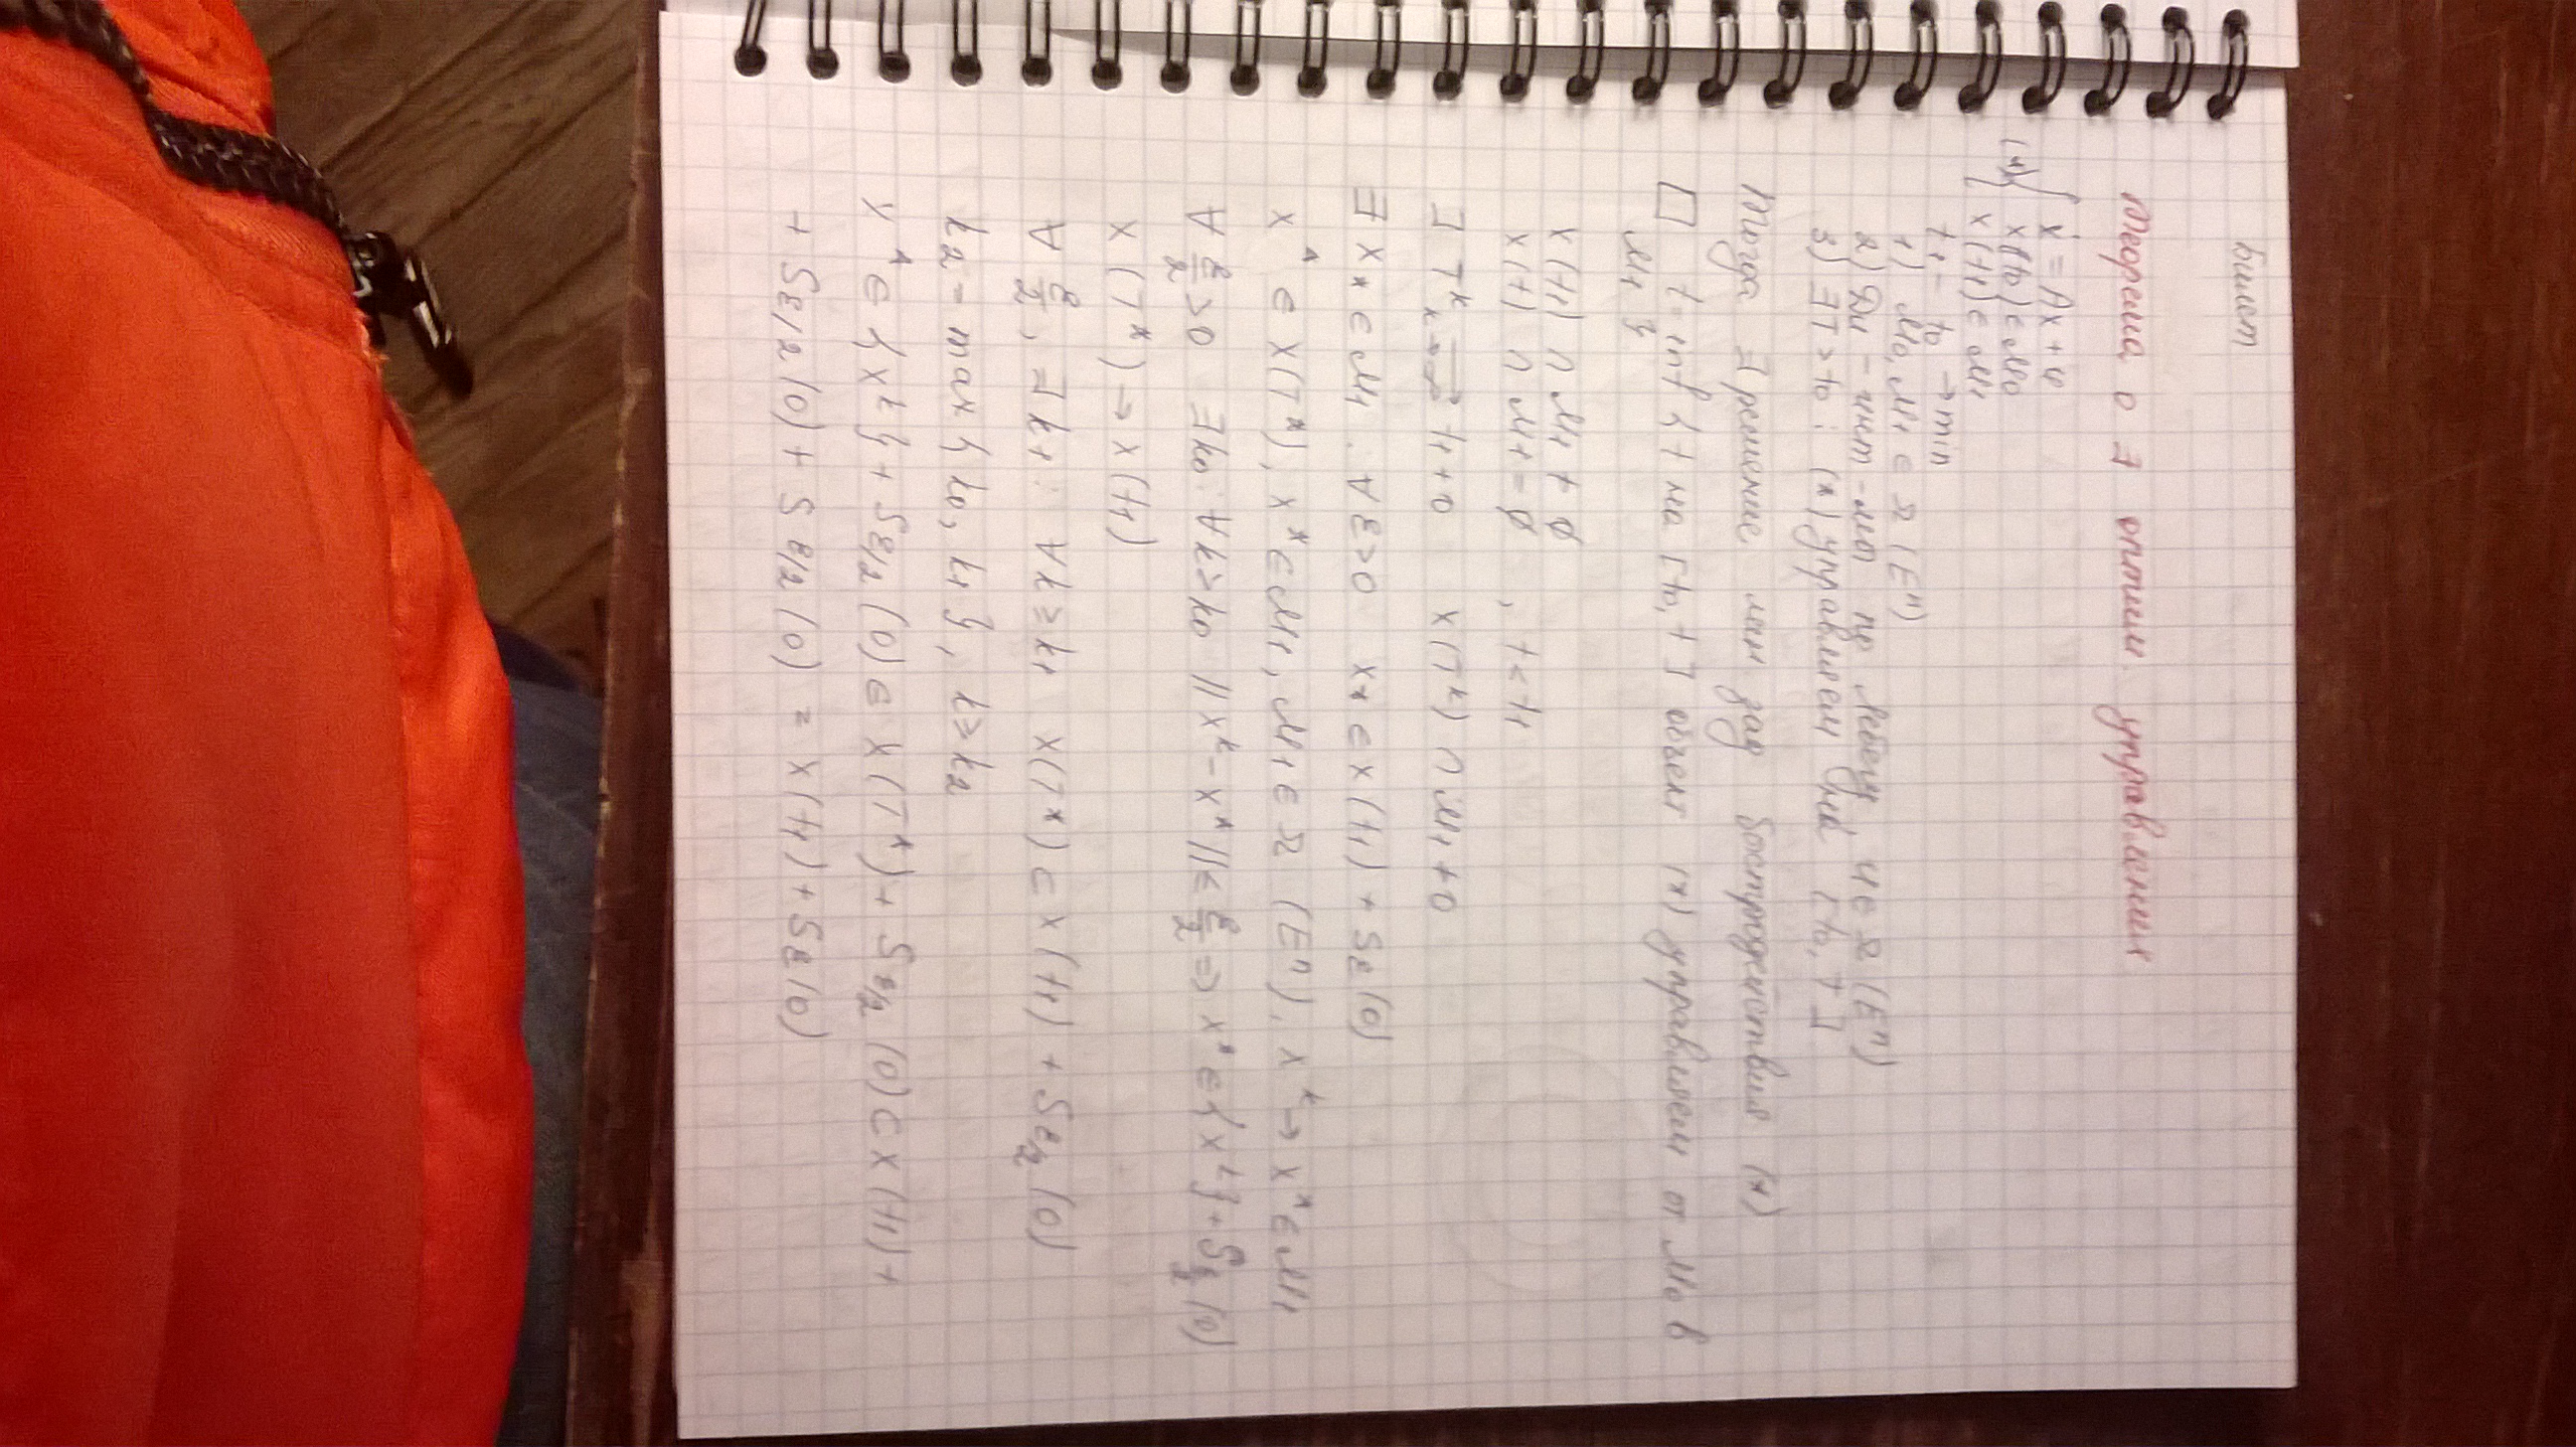 Билет
Теорема о ∃ оптим. управления
(*) { ẋ = Ax + u
x(t0) ∈ M0
x(t1) ∈ M1
t1 - t0 → min
1) M0, M1 ∈ Ω(Eⁿ)
2) Du - инт-мо по Лебегу, U ∈ Ω(Eⁿ)
3) ∃T > t0 : (*) управляем на [t0, T]
Тогда ∃ решение лин зад быстродействия (*)
□ t1 = inf { t на [t0, t] объект (*) управляем от M0 в
M1 }
X(t1) ∩ M1 ≠ ∅
X(t) ∩ M1 = ∅ , t < t1
] Tᵏ → t1+0 X(Tᵏ) ∩ M1 ≠ ∅
∃ x* ∈ M1 : ∀ε>0 x* ∈ X(t1) + Sε(0)
xᵏ ∈ X(Tᵏ), xᵏ ∈ M1, M1 ∈ Ω(Eⁿ), xᵏ → x* ∈ M1
∀ ε/2 > 0 ∃k0 : ∀k>k0 ||xᵏ - x*|| ≤ ε/2 => x* ∈ {xᵏ} + Sε/2(0)
X(Tᵏ) → X(t1)
∀ ε/2, ∃k1 : ∀k ≥ k1 X(Tᵏ) ⊂ X(t1) + Sε/2(0)
k2 = max{k0, k1}, k ≥ k2
x* ∈ {xᵏ} + Sε/2(0) ∈ X(Tᵏ) + Sε/2(0) ⊂ X(t1) +
+ Sε/2(0) + Sε/2(0) = X(t1) + Sε(0)